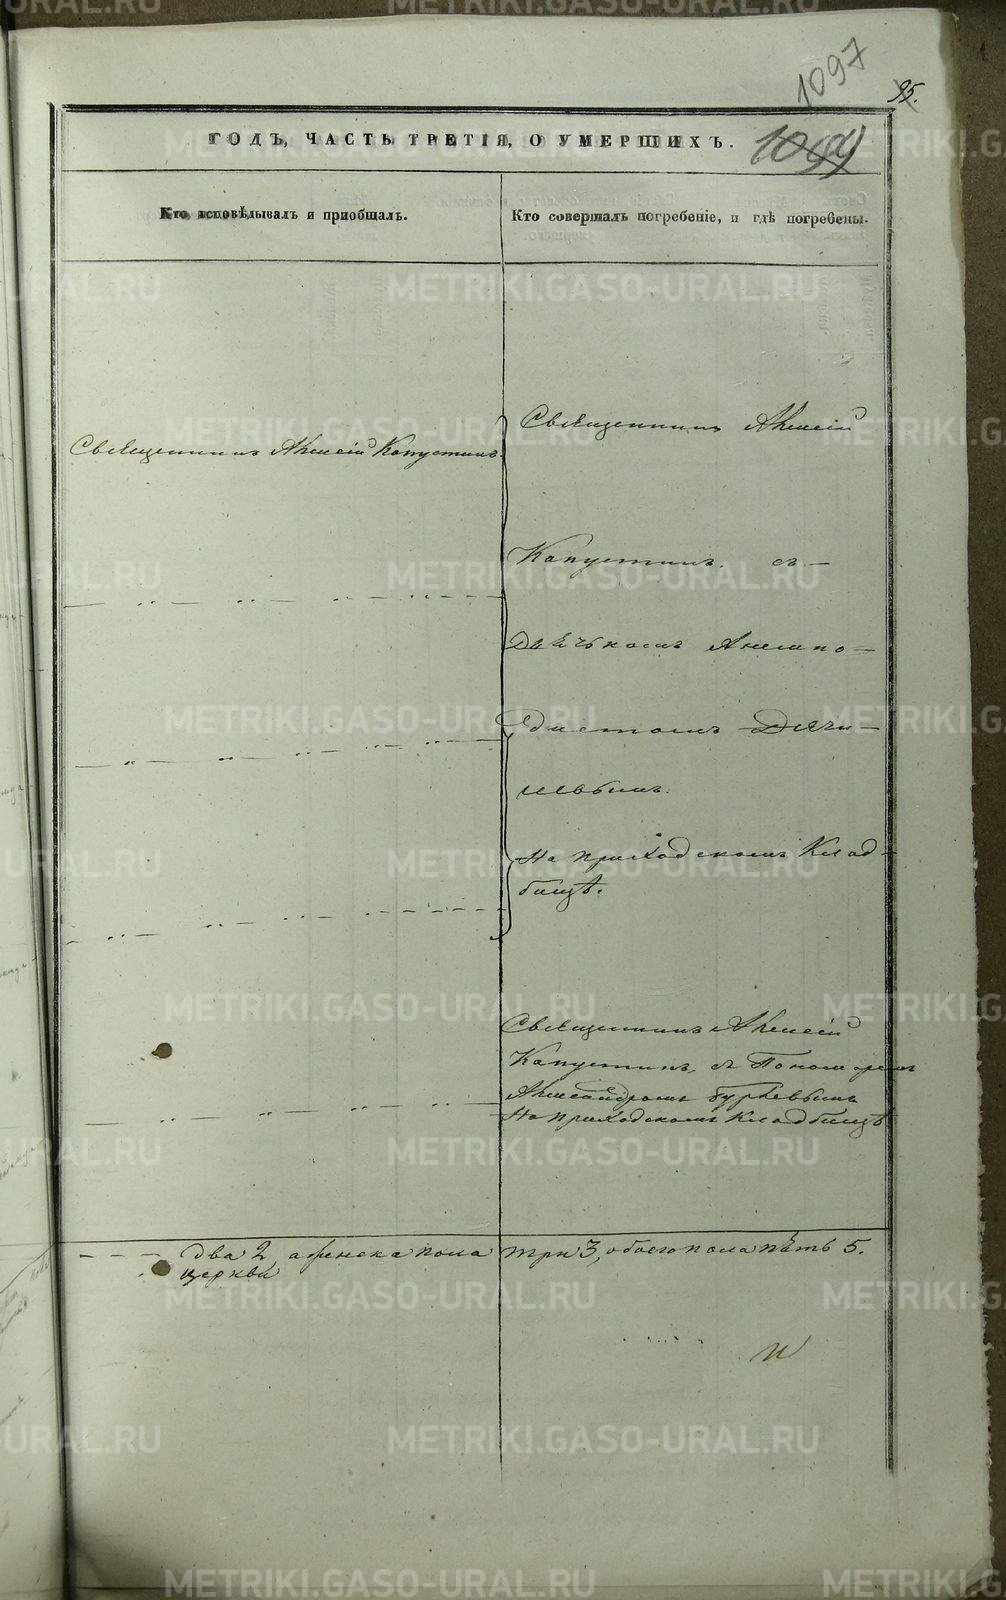 1097
95.
ГОДЪ, ЧАСТЬ ТРЕТІЯ, О УМЕРШИХЪ.
Кто исповѣдывалъ и пріобщалъ.
Кто совершалъ погребеніе, и гдѣ погребены.
Священникъ Алексій Капустинъ.
Священникъ Алексій
Капустинъ. съ
Дьячкомъ Анемпо-
дистомъ
На приходскомъ Клад-
бищѣ.
Священникъ Алексій
Капустинъ, съ Пономаремъ
Александромъ
На приходскомъ Кладбищѣ
два 2 а женска пола три 3, обоего пола пять 5.
церкви
METRIKI.GASO-URAL.RU